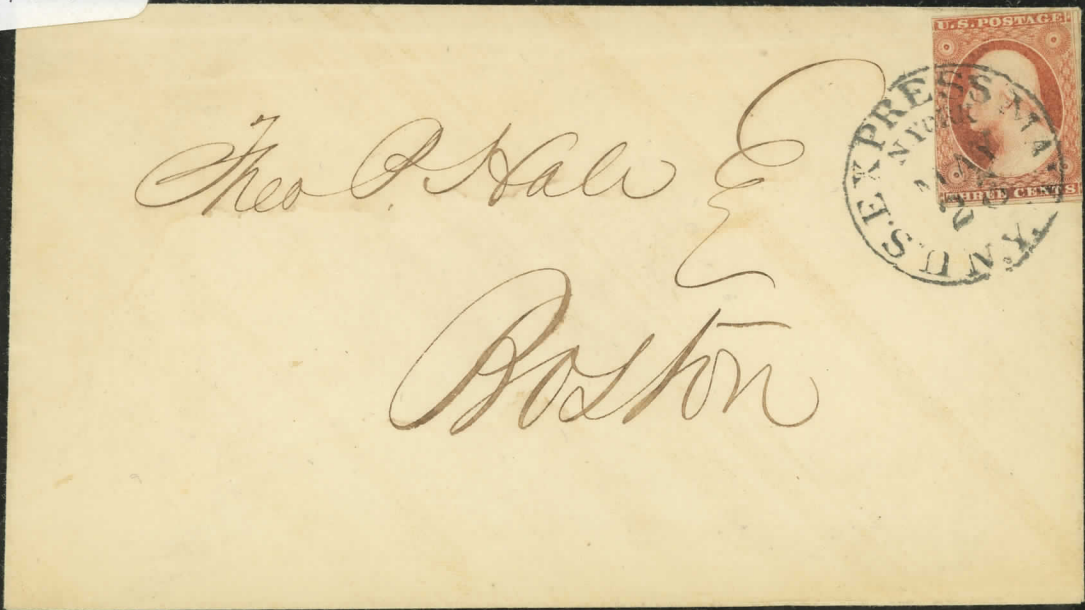 U.S. POSTAGE
THREE CENTS
U.S. EXPRESS MA
N. YORK
Theo P. Hale E
Boston